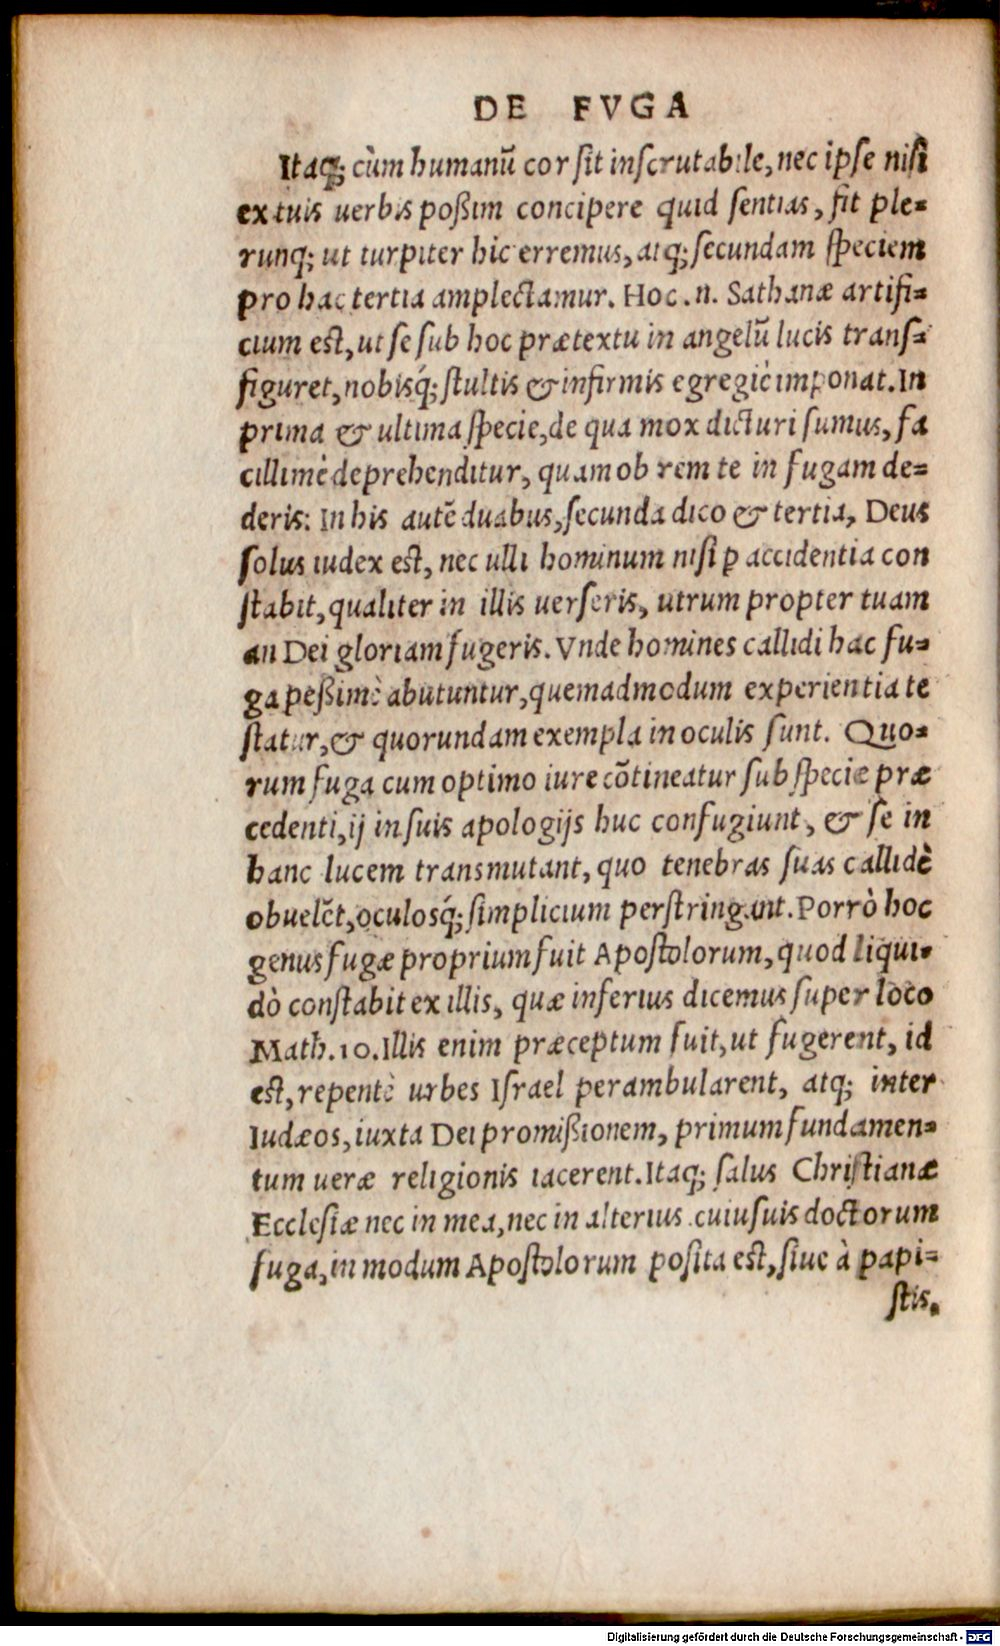 DE FVGA
Itaq; cùm humanũ cor sit inscrutabile, nec ipse nisi
ex tuis uerbis poßim concipere quid sentias, fit ple=
runq; ut turpiter hic erremus, atq; secundam speciem
pro hac tertia amplectamur. Hoc .n. Sathanæ artifi=
cium est, ut se sub hoc prætextu in angelũ lucis trans=
figuret, nobisq́; stultis & infirmis egregiè imponat. In
prima & ultima specie, de qua mox dicturi sumus, fa
cillimè deprehenditur, quam ob rem te in fugam de=
deris: In his autẽ duabus, secunda dico & tertia, Deus
solus iudex est, nec ulli hominum nisi ꝑ accidentia con
stabit, qualiter in illis uerseris, utrum propter tuam
an Dei gloriam fugeris. Vnde homines callidi hac fu=
ga peßimè abutuntur, quemadmodum experientia te
statur, & quorundam exempla in oculis sunt. Quo=
rum fuga cum optimo iure cõtineatur sub specie præ
cedenti, ij in suis apologijs huc confugiunt, & se in
hanc lucem transmutant, quo tenebras suas callidè
obuelẽt, oculosq́; simplicium perstringant. Porrò hoc
genus fugæ proprium fuit Apostolorum, quod liqui=
dò constabit ex illis, quæ inferius dicemus super loco
Math. 10. Illis enim præceptum fuit, ut fugerent, id
est, repentè urbes Israel perambularent, atq; inter
Iudæos, iuxta Dei promißionem, primum fundamen=
tum ueræ religionis iacerent. Itaq; salus Christianæ
Ecclesiæ nec in mea, nec in alterius cuiusuis doctorum
fuga, in modum Apostolorum posita est, siue à papi=
stis.
Digitalisierung gefördert durch die Deutsche Forschungsgemeinschaft - DFG